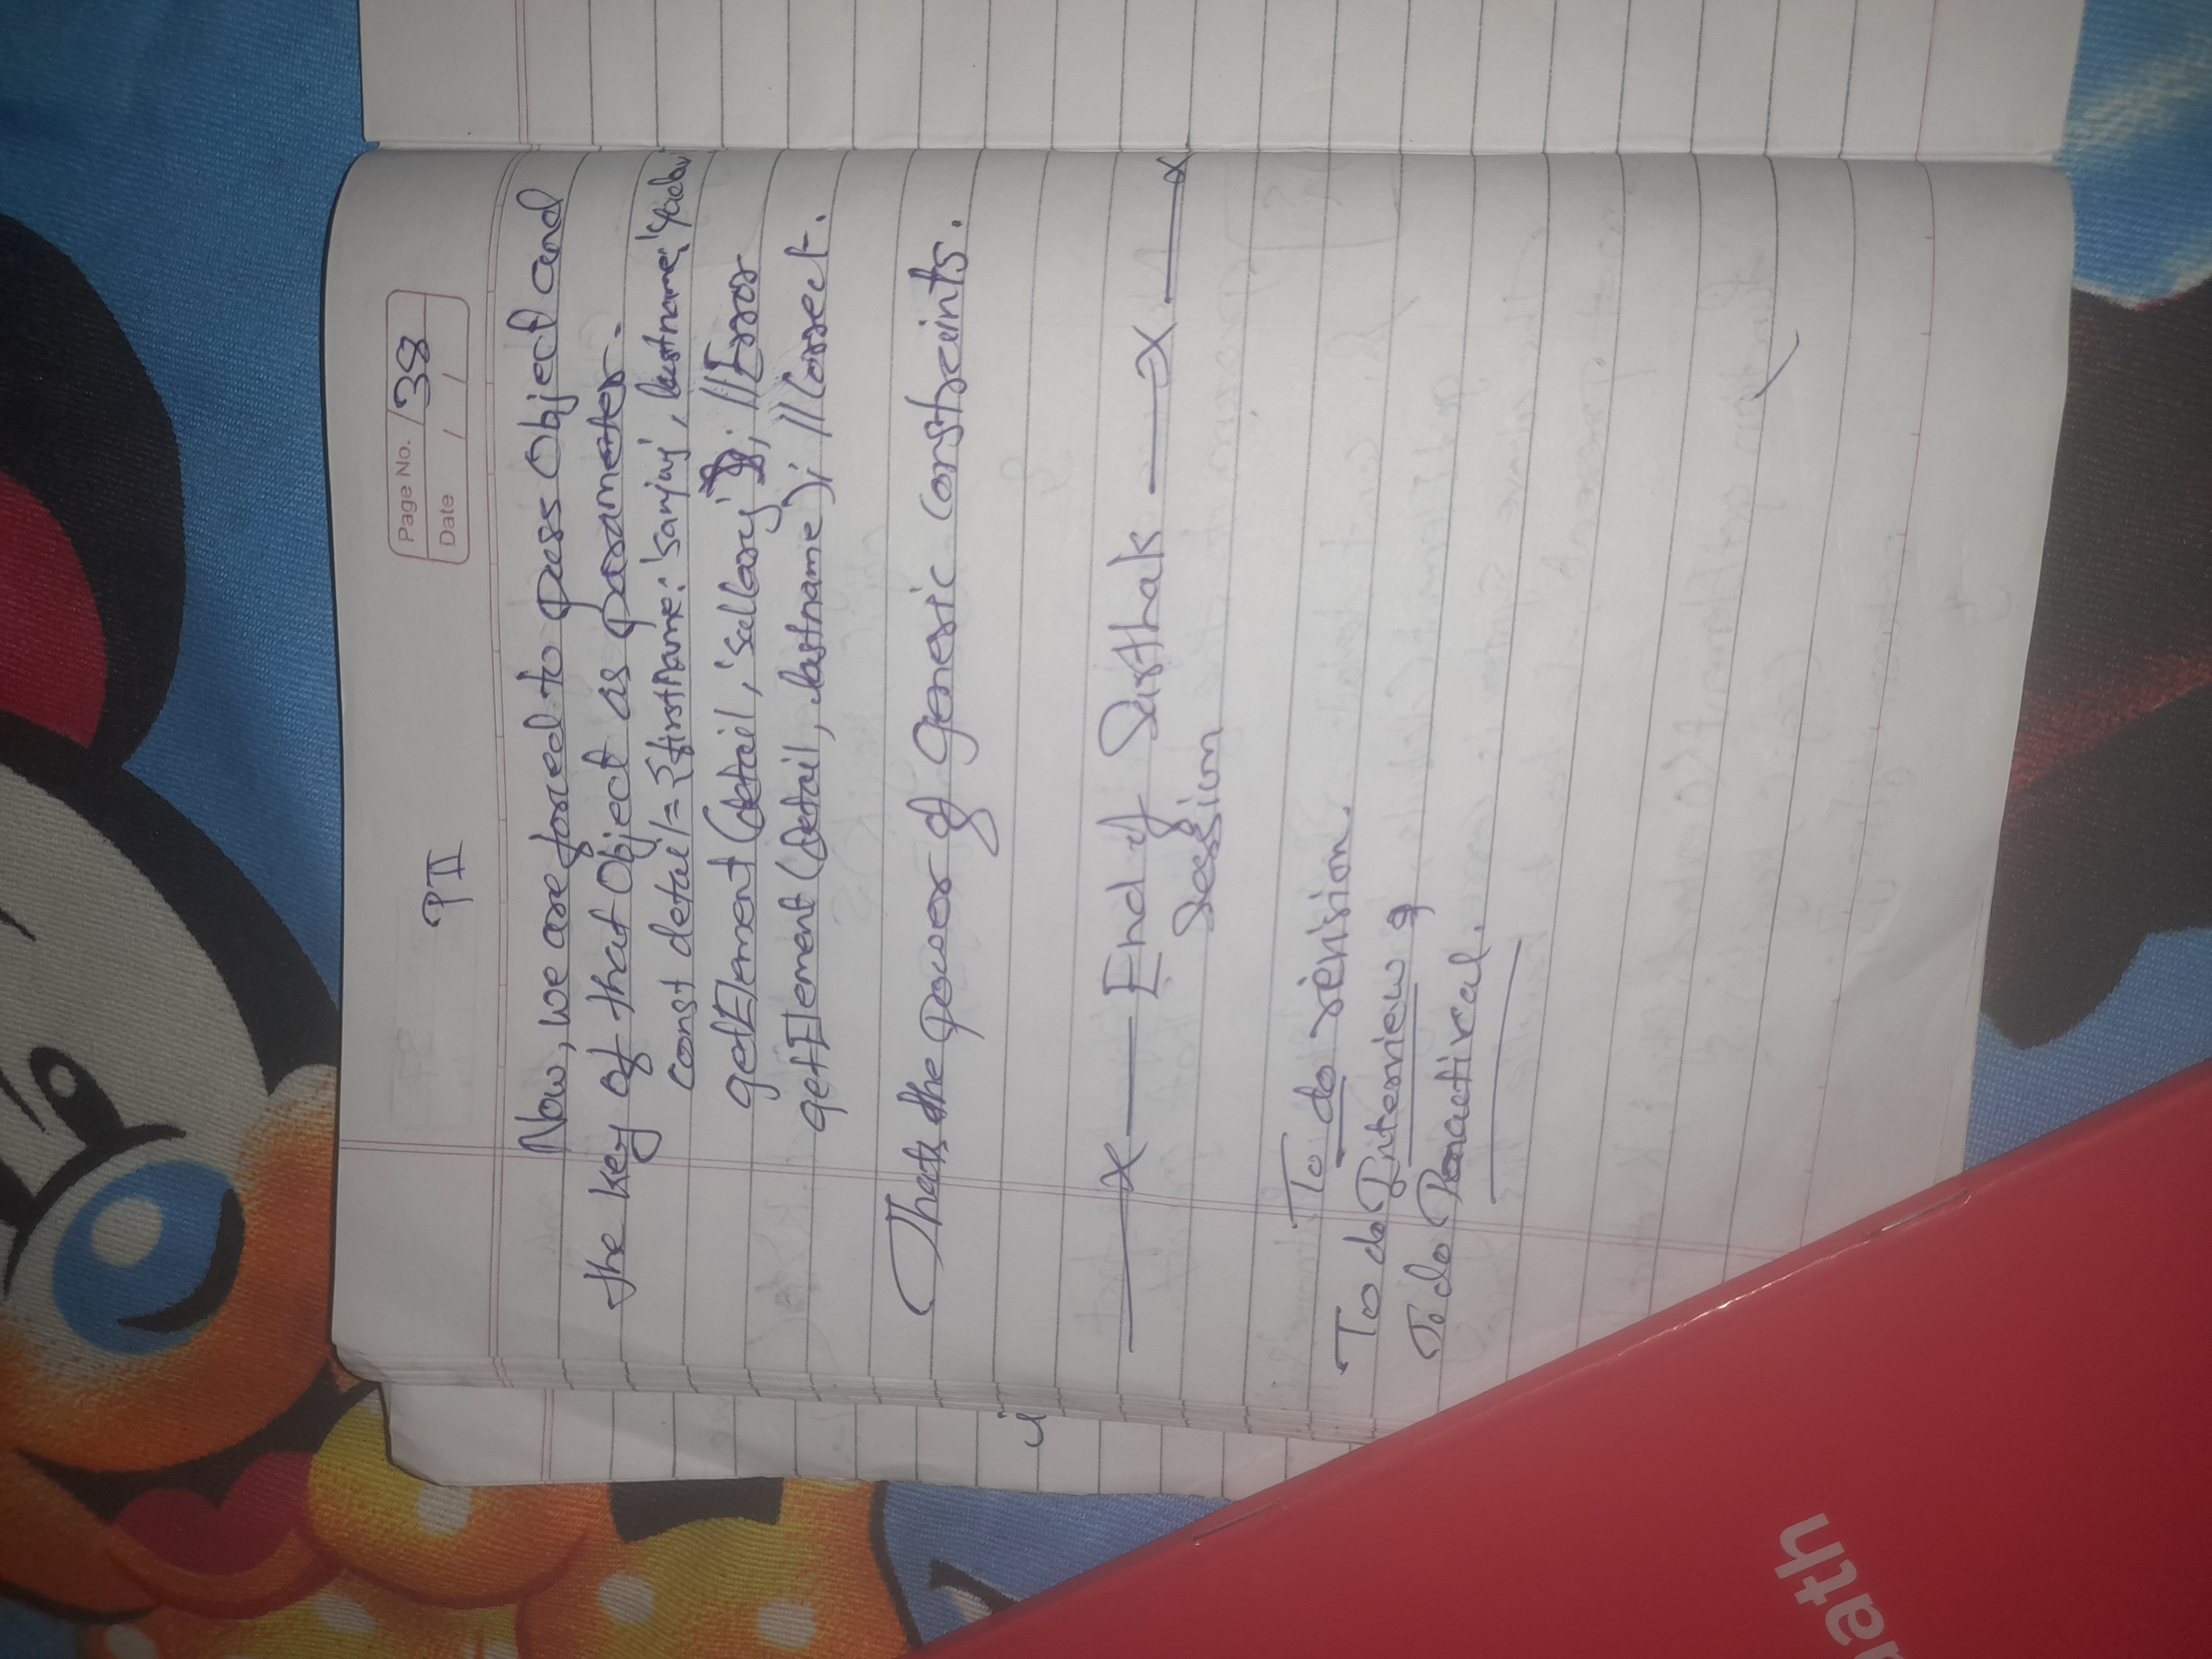 PII
Page No. 38
Date / /
Now, we are forced to pass Object and
the key of that Object as parameter.
const detail = {firstName: 'Sanjay', lastname: 'Yadav
getElement(detail, 'sallary'); //Error
getElement(detail, lastname); //Correct.
Thats the power of Generic constraints.
——x—— End of Sarthak ——x——x
Session
To do revision.
To do Interview
To do Practical.
aath